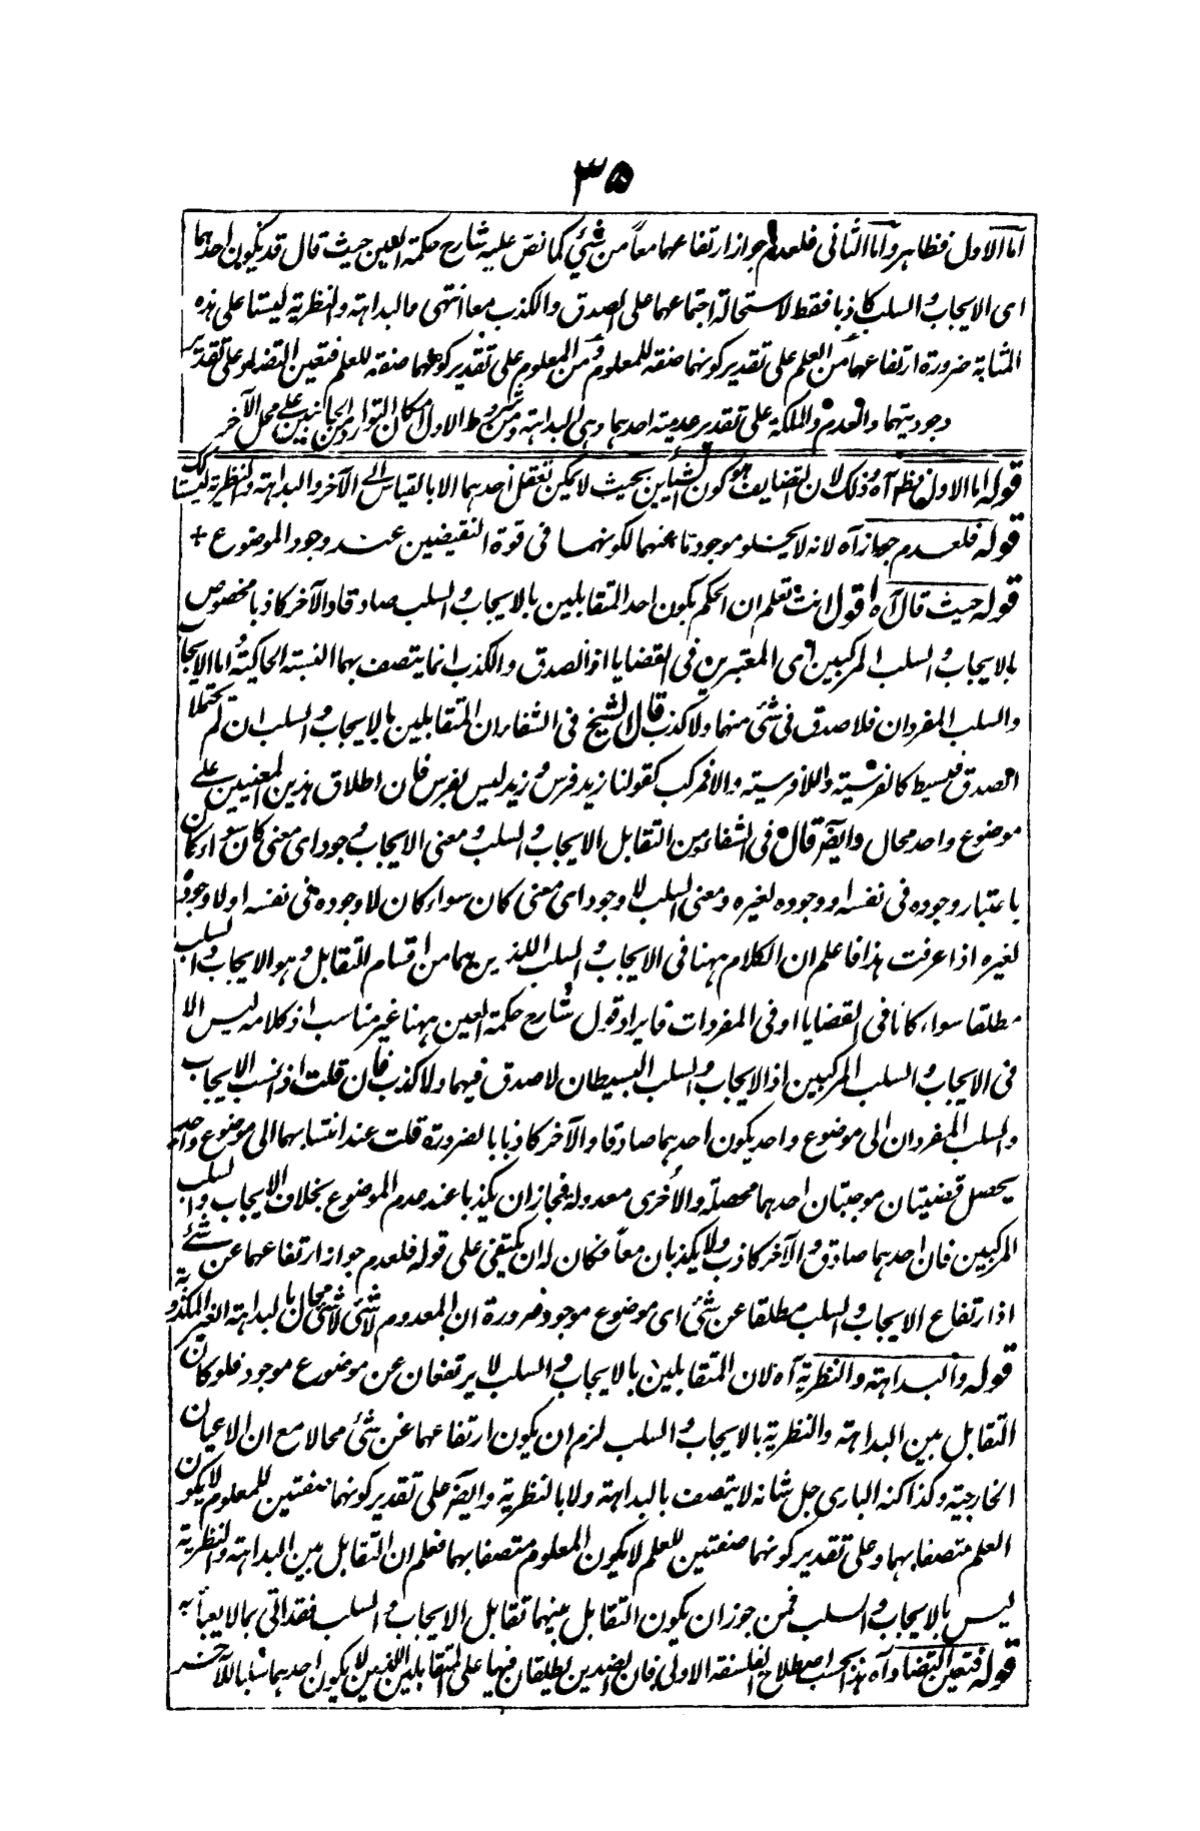 ٣٥
اما الاول فظاهر واما الثانى فلعدم جواز ارتفاعهما معاً من شئ كما نص عليه شارح حكمة العين حيث قال قد يكون احدهما
اى الايجاب والسلب كاذبا فقط لاستحالة اجتماعهما على الصدق والكذب معا انتهى والبداهة والنظرية ليستا على هذه
المثابة ضرورة ارتفاعهما من العلم على تقدير كونهما صفة للمعلوم ومن المعلوم على تقدير كونهما صفة للعلم فتعين التضاد على تقدير
وجوديتهما والعدم والملكة على تقدير عدمية احدهما وهى البداهة ومن شروط الاول امكان التوارد من الجانبين على محل الآخر
قوله اما الاول فظ آه وذلك لان التضايف هو كون الشيئين بحيث لا يمكن تعقل احدهما الا بالقياس الى الآخر والبداهة والنظرية ليستا كك
قوله فلعدم جواز آه لانه لا يخلو موجود ما عنهما لكونهما فى قوة النقيضين عند وجود الموضوع +
قوله حيث قال آه اقول انت تعلم ان الحكم بكون احد المتقابلين بالايجاب والسلب صادقا والآخر كاذبا مخصوص
بالايجاب والسلب المركبين اى المعتبرين فى القضايا اذ الصدق والكذب انما يتصف بهما النسبة الحاكية واما الايجاب
والسلب المفردان فلا صدق فى شئ منهما ولا كذب قال الشيخ فى الشفاء ان المتقابلين بالايجاب والسلب ان لم يحتملا
الصدق فبسيط كالفرسية واللافرسية والا فمركب كقولنا زيد فرس وزيد ليس بفرس فان اطلاق هذين المعنيين على
موضوع واحد محال وايضاً قال فى الشفاء من التقابل الايجاب والسلب ومعنى الايجاب وجود اى معنى كان سواء كان
باعتبار وجوده فى نفسه او وجوده لغيره ومعنى السلب لا وجود اى معنى كان سواء كان لا وجوده فى نفسه او لا وجوده
لغيره اذا عرفت هذا فاعلم ان الكلام ههنا فى الايجاب والسلب اللذين هما من اقسام التقابل وهو الايجاب والسلب
مطلقا سواء كانا فى القضايا او فى المفردات فايراد قول شارح حكمة العين ههنا غير مناسب اذ كلامه ليس الا
فى الايجاب والسلب المركبين اذ الايجاب والسلب البسيطان لا صدق فيهما ولا كذب فان قلت اذا نسب الايجاب
والسلب المفردان الى موضوع واحد يكون احدهما صادقا والآخر كاذبا بالضرورة قلت عند انتسابهما الى موضوع واحد
يحصل قضيتان موجبتان احدهما محصلة والاخرى معدولة فجاز ان يكذبا عند عدم الموضوع بخلاف الايجاب والسلب
المركبين فان احدهما صادق والآخر كاذب ولا يكذبان معاً فكان له ان يكتفى على قوله فلعدم جواز ارتفاعهما عن شئ
اذ ارتفاع الايجاب والسلب مطلقا عن شئ اى موضوع موجود ضرورة ان المعدوم لا شئ محال بالبداهة الغير المكذوبة
قوله والبداهة والنظرية آه لان المتقابلين بالايجاب والسلب لا يرتفعان عن موضوع موجود فلو كان
التقابل بين البداهة والنظرية بالايجاب والسلب لزم ان يكون ارتفاعهما عن شئ محالا مع ان الاعيان
الخارجية وكذا كنه البارى جل شانه لا يتصف بالبداهة ولا بالنظرية وايضاً على تقدير كونهما صفتين للمعلوم لا يكون
العلم متصفا بهما وعلى تقدير كونهما صفتين للعلم لا يكون المعلوم متصفا بهما فعلم ان التقابل بين البداهة والنظرية
ليس بالايجاب والسلب فمن جوز ان يكون التقابل بينهما تقابل الايجاب والسلب فقد اتى بما لا يعبأ به
قوله فتعين التضاد آه هذا بحسب اصطلاح الفلسفة الاولى فان الضدين يطلقان فيها على المتقابلين اللذين لا يكون احدهما سلبا للآخر